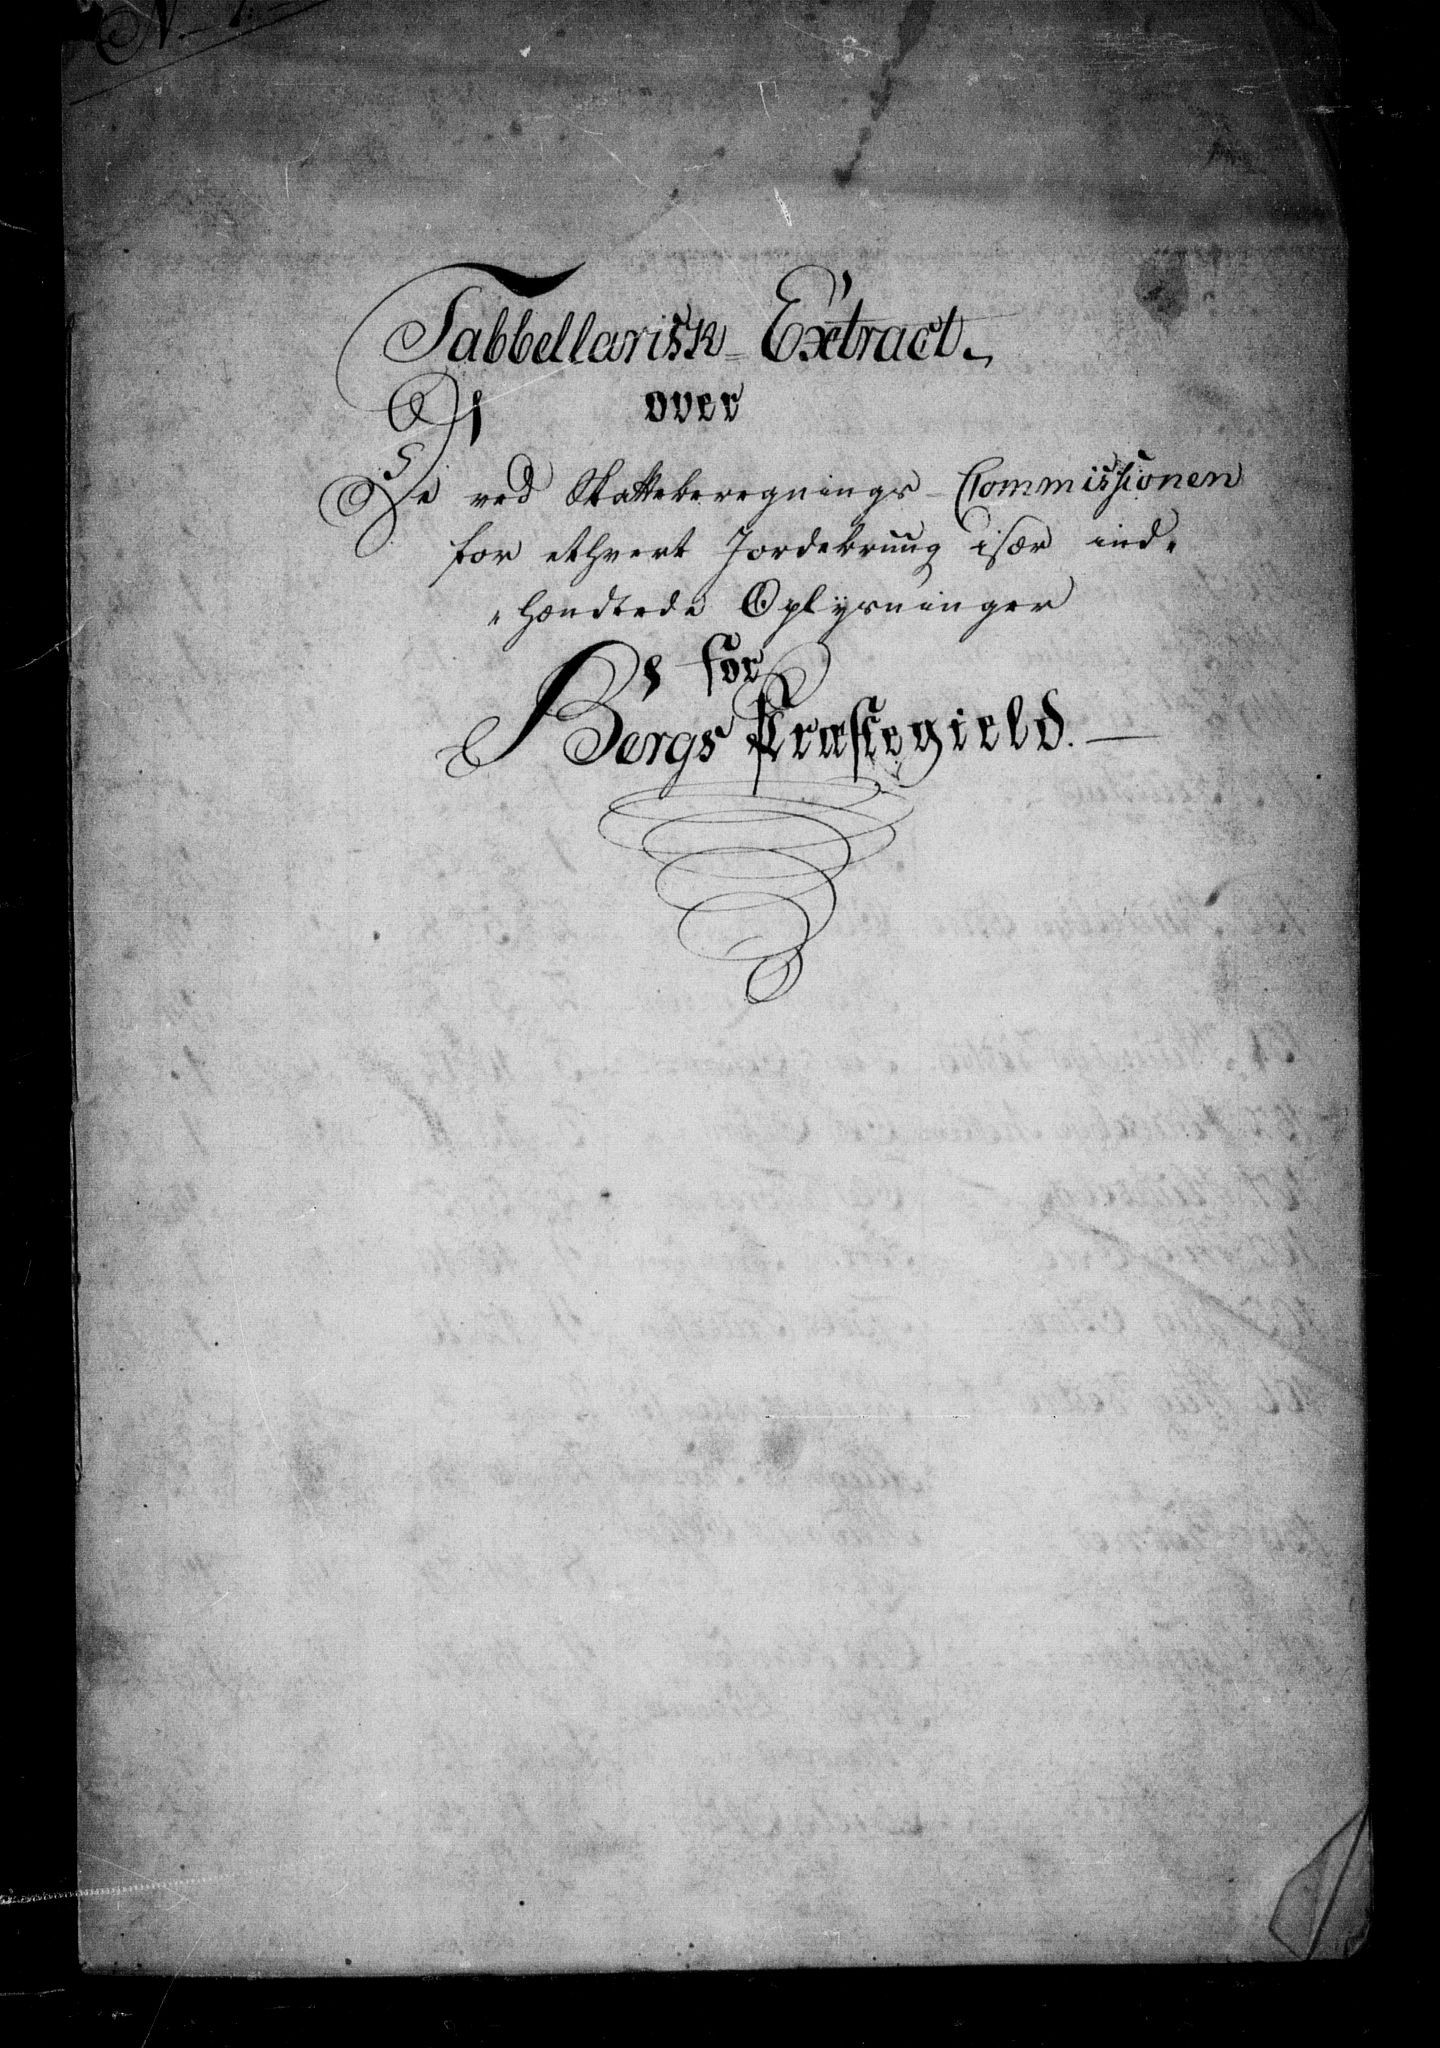 N. 7.
Tabbellarisk Extract
over
De ved Skatteberegnings-Commissionen
for ethvert Jordebruug især ind-
-hændtede Oplysninger
for
Bergs Præstegield.